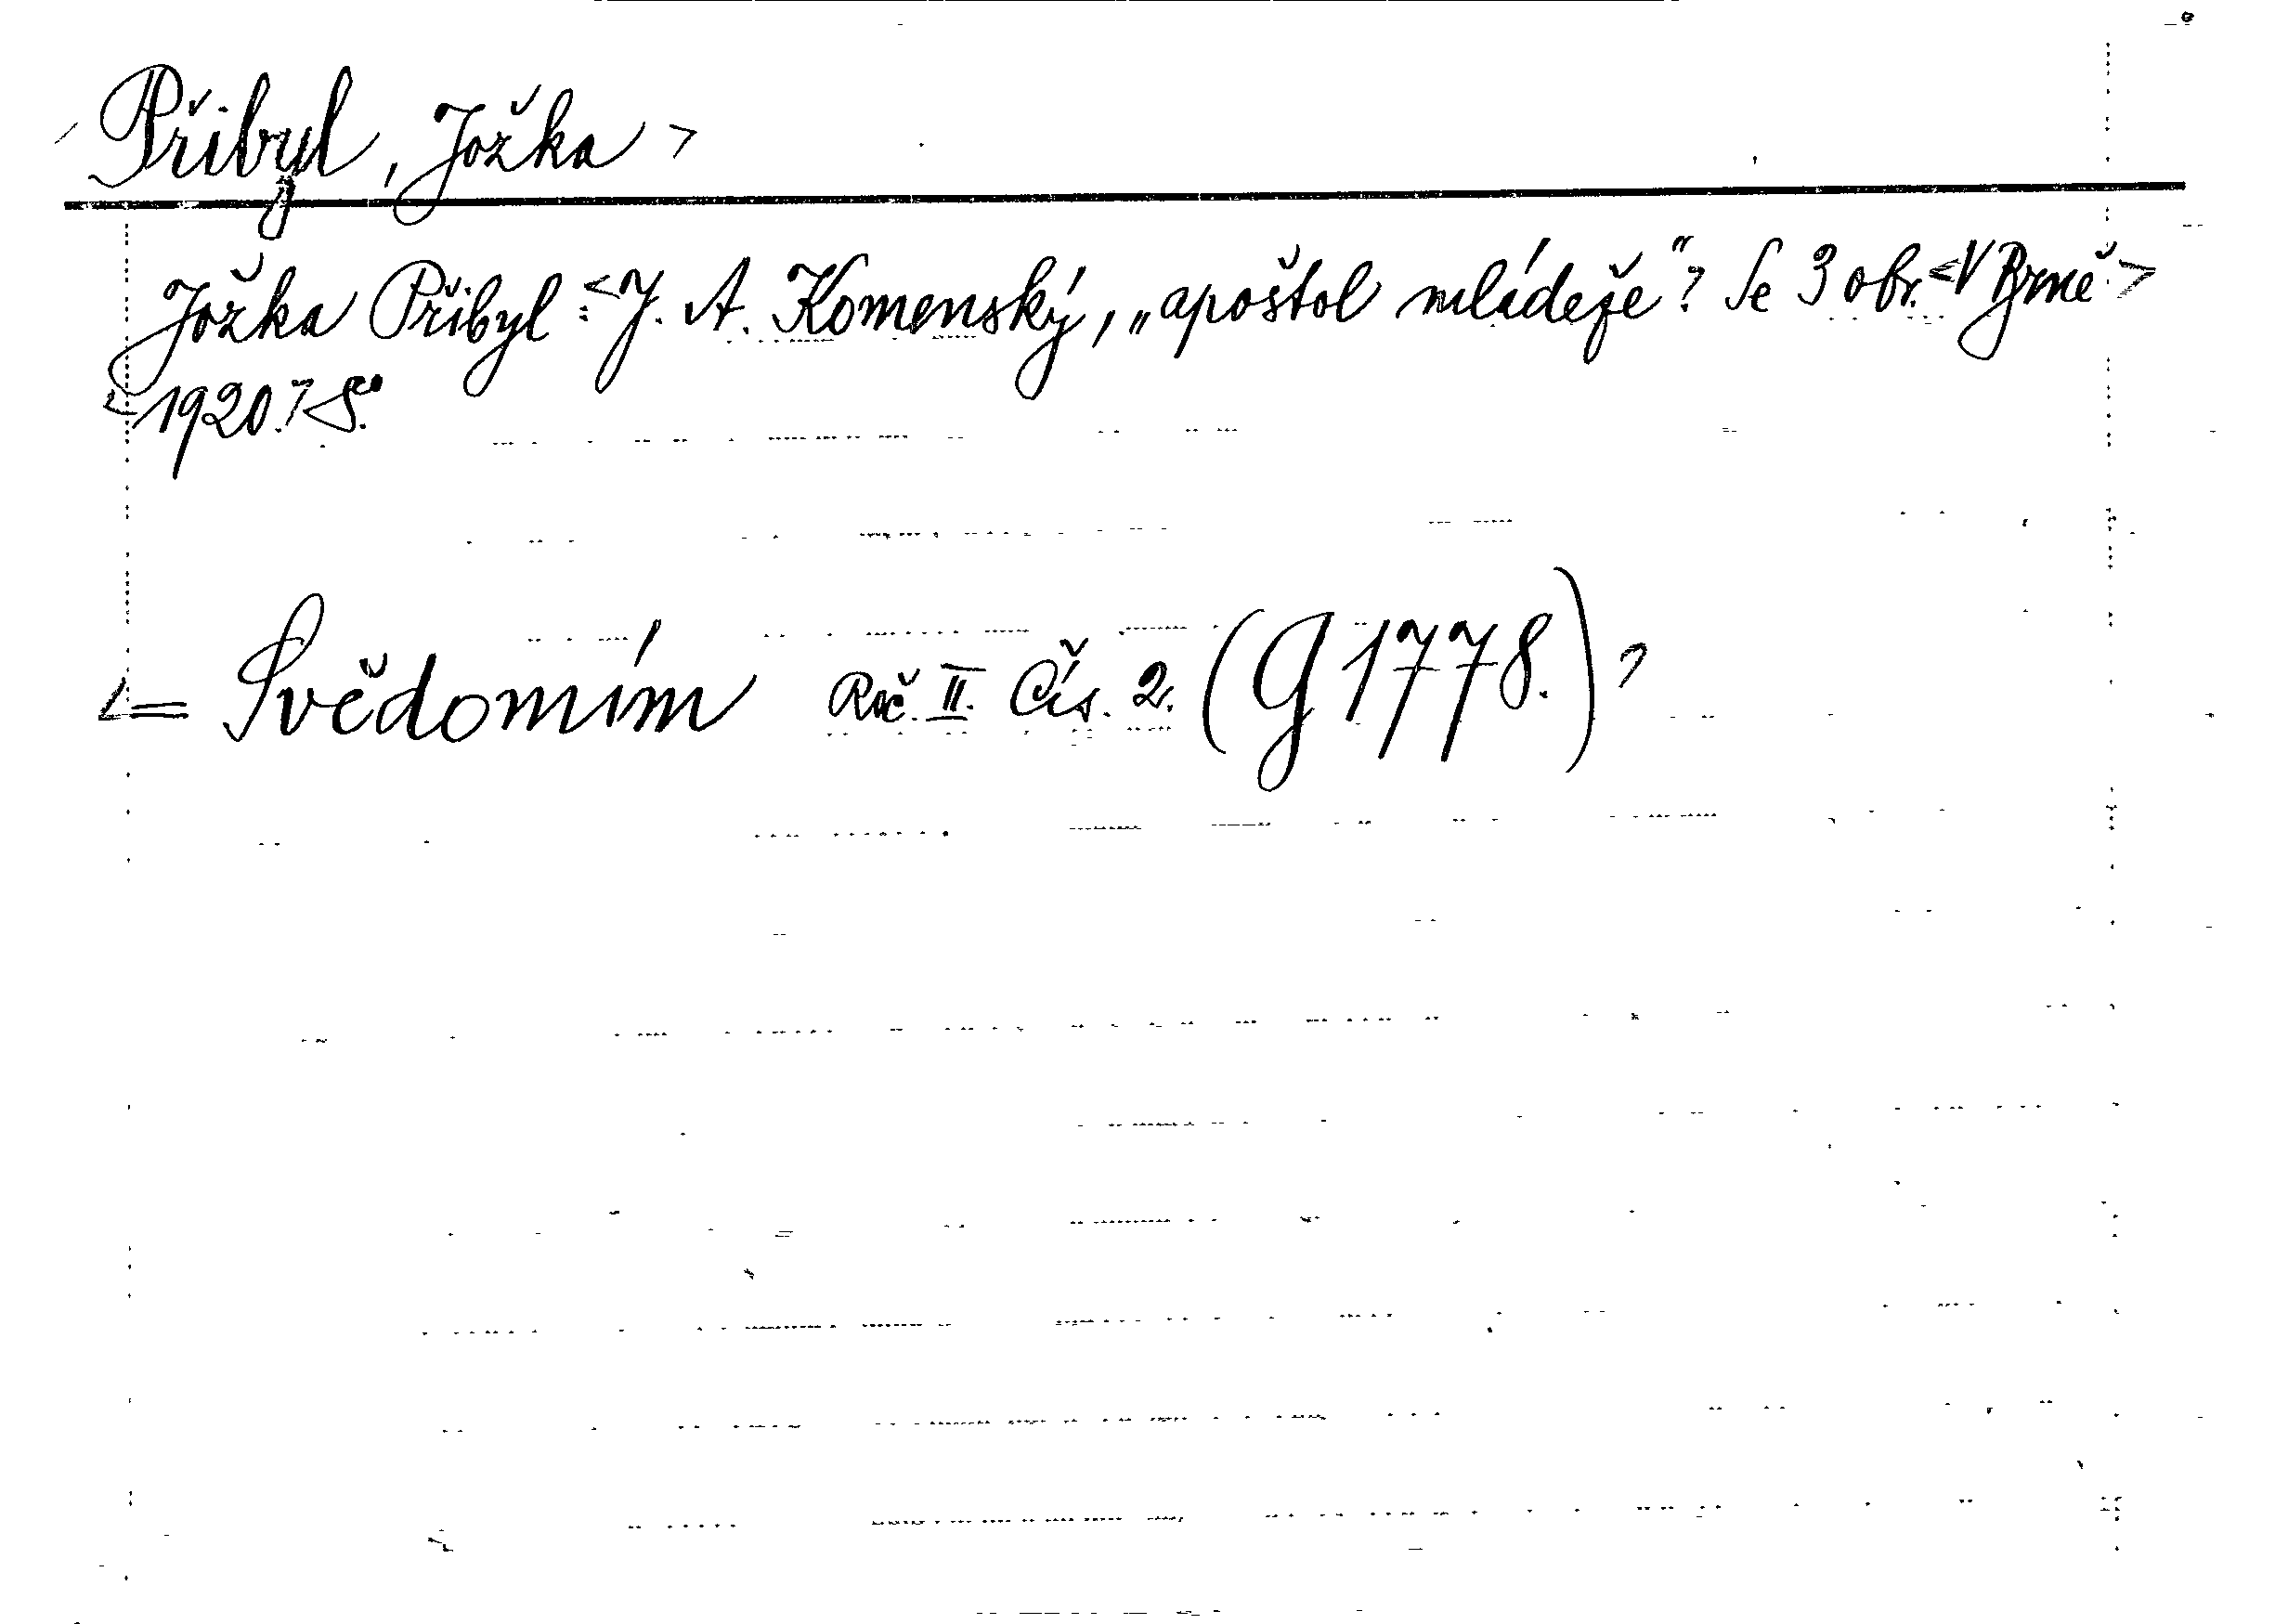 Přibyl, Jožka >
Jožka Přibyl: <J. A. Komenský, „apoštol mládeže“> Se 3 obr. <V Brně>
<1920.> 8°.
<= Svědomím Roč. II. Čís. 2. (G 1778.)>